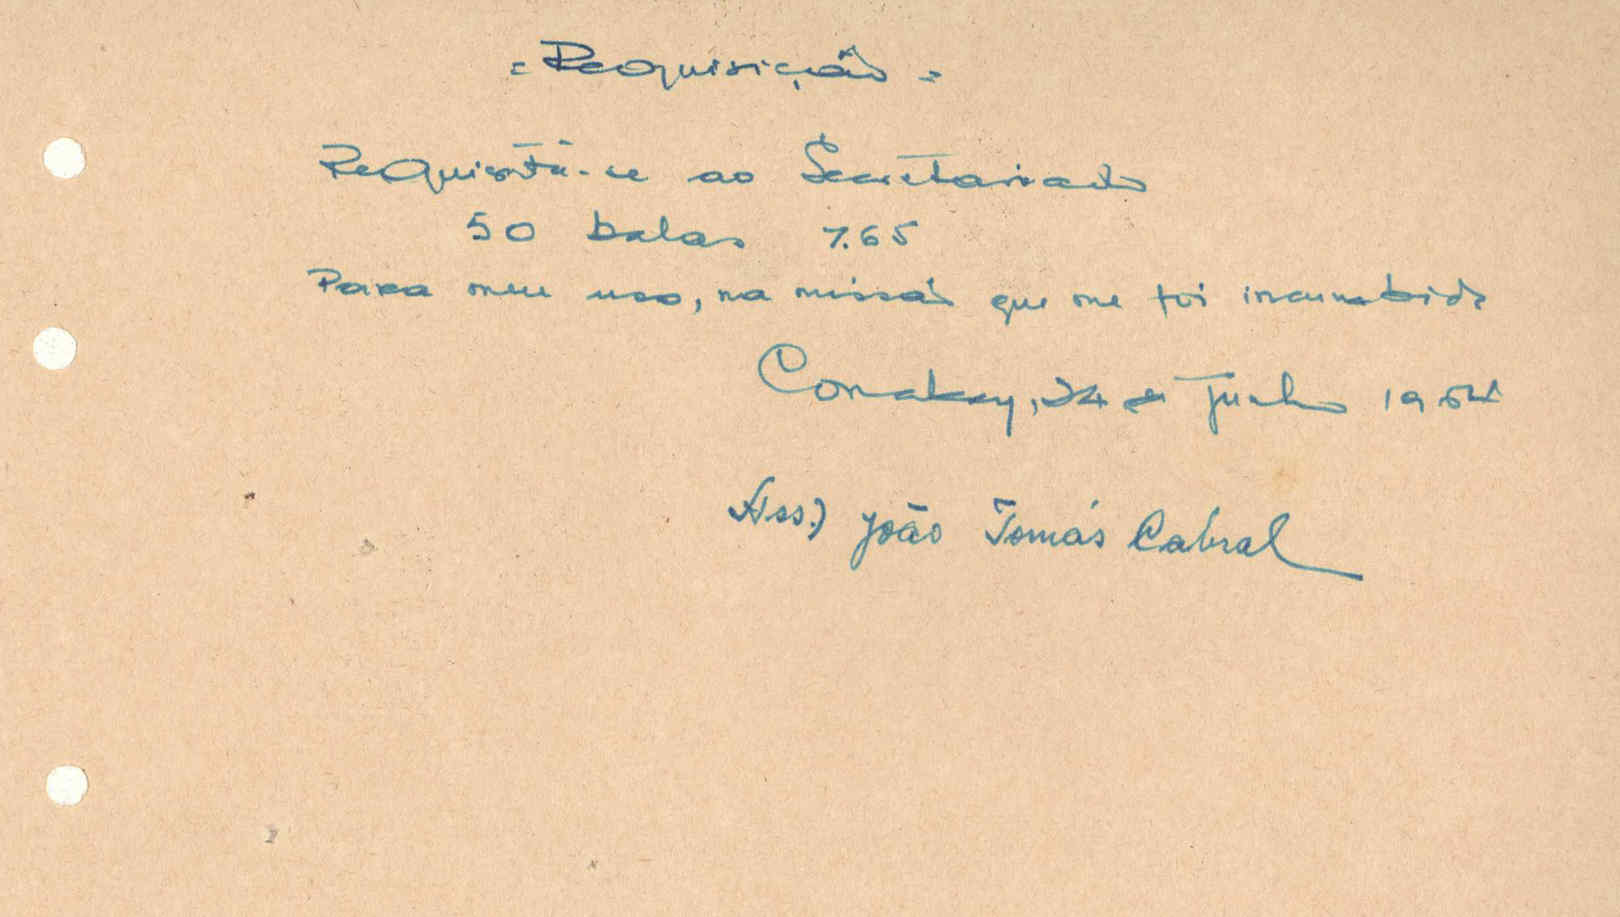 = Requisição =
Requisita-se ao Secretariado
50 balas 7.65
Para meu uso, na missão que me foi incumbida
Conakry, 24 de Junho 1964
Ass.) João Tomás Cabral